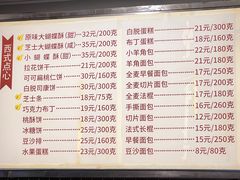 西式点心
原味大蝴蝶酥(甜)---32元/200克
芝士大蝴蝶酥(咸)---35元/200克
小蝴蝶酥(甜)---35元/200克
拉花饼干---21元/200克
可可扁桃仁饼---30元/160克
白脱司康饼---30元/300克
芝士条---18元/75克
巧克力布丁---19元/160克
桃酥饼---18元/300克
冰糖饼---25元/300克
豆沙排---21元/160克
水果蛋糕---23元/300克
白脱蛋糕---21元/300克
布丁蛋糕---18元/180克
小羊角包---22元/180克
羊角面包---22元/180克
全麦早餐面包---25元/300克
全麦切片面包---25元/300克
全麦法棍---17元/300克
手撕面包---26元/300克
切片面包---12元/200克
法式长棍---15元/180克
早餐面包---15元/250克
豆沙面包---8元/80克